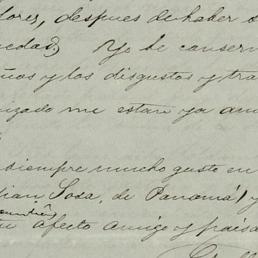 dores, despues de haber s
uedad; Yo he conserv
ños y los disgustos y tra
izado me estare ya am
siempre mucho gusto en
lian Sosa, de Panamá) y
su afecto amigo y paisa